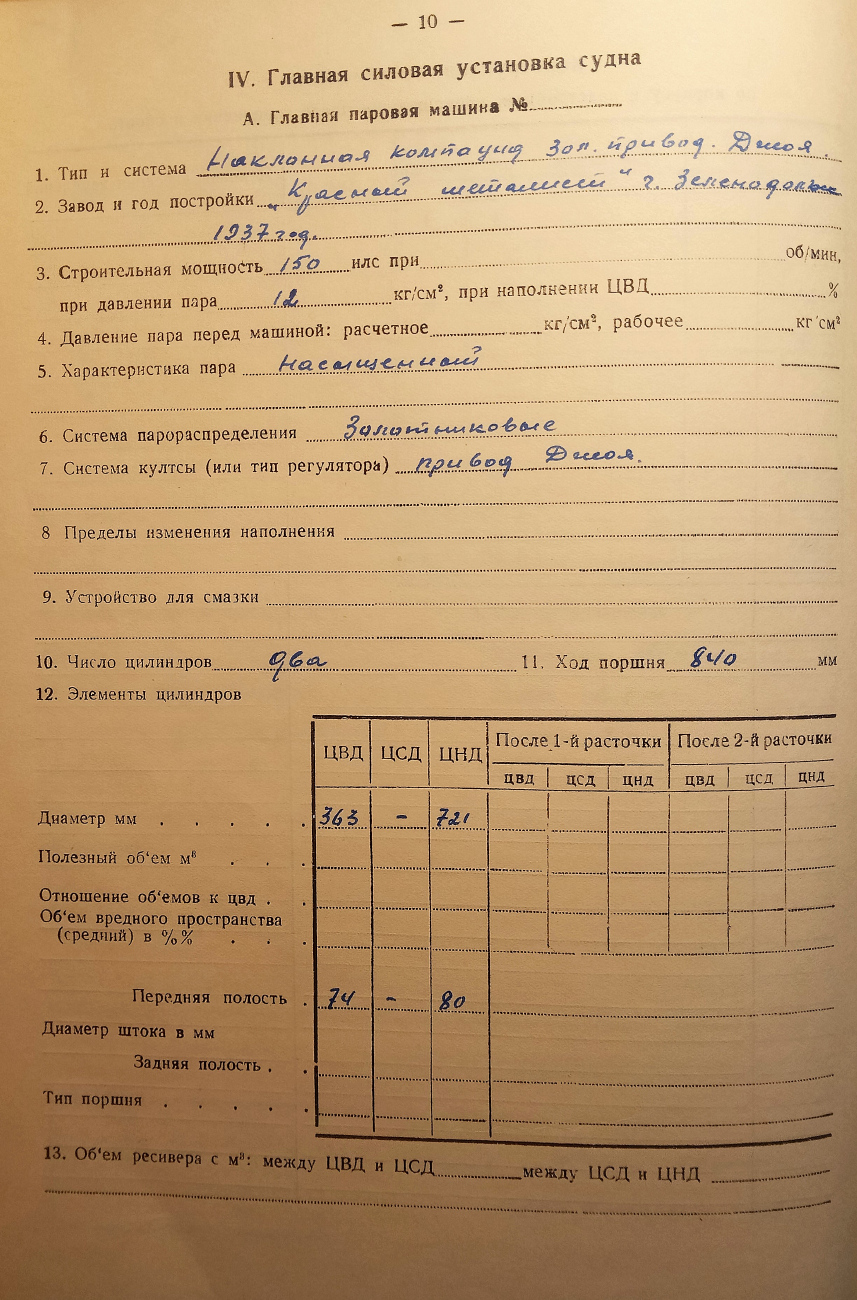 — 10 —
IV. Главная силовая установка судна
А. Главная паровая машина №
1. Тип и система Наклонная компаунд зол. привод. Джоя.
2. Завод и год постройки „Красный металлист" г. Зеленодольск
1937 год.
3. Строительная мощность 150 илс при об/мин,
при давлении пара 12 кг/см², при наполнении ЦВД %
4. Давление пара перед машиной: расчетное кг/см², рабочее кг/см²
5. Характеристика пара Насыщенный
6. Система парораспределения Золотниковые
7. Система култсы (или тип регулятора) привод Джоя.
8 Пределы изменения наполнения
9. Устройство для смазки
10. Число цилиндров два 11. Ход поршня 840 мм
12. Элементы цилиндров
ЦВД ЦСД ЦНД После 1-й расточки После 2-й расточки
ЦВД ЦСД ЦНД ЦВД ЦСД ЦНД
Диаметр мм . . . . . 363 - 721
Полезный об'ем м³ . . .
Отношение об'емов к цвд . .
Об'ем вредного пространства
(средний) в %% . . .
Передняя полость . 74 - 80
Диаметр штока в мм
Задняя полость . .
Тип поршня . . . . .
13. Об'ем ресивера с м³: между ЦВД и ЦСД между ЦСД и ЦНД